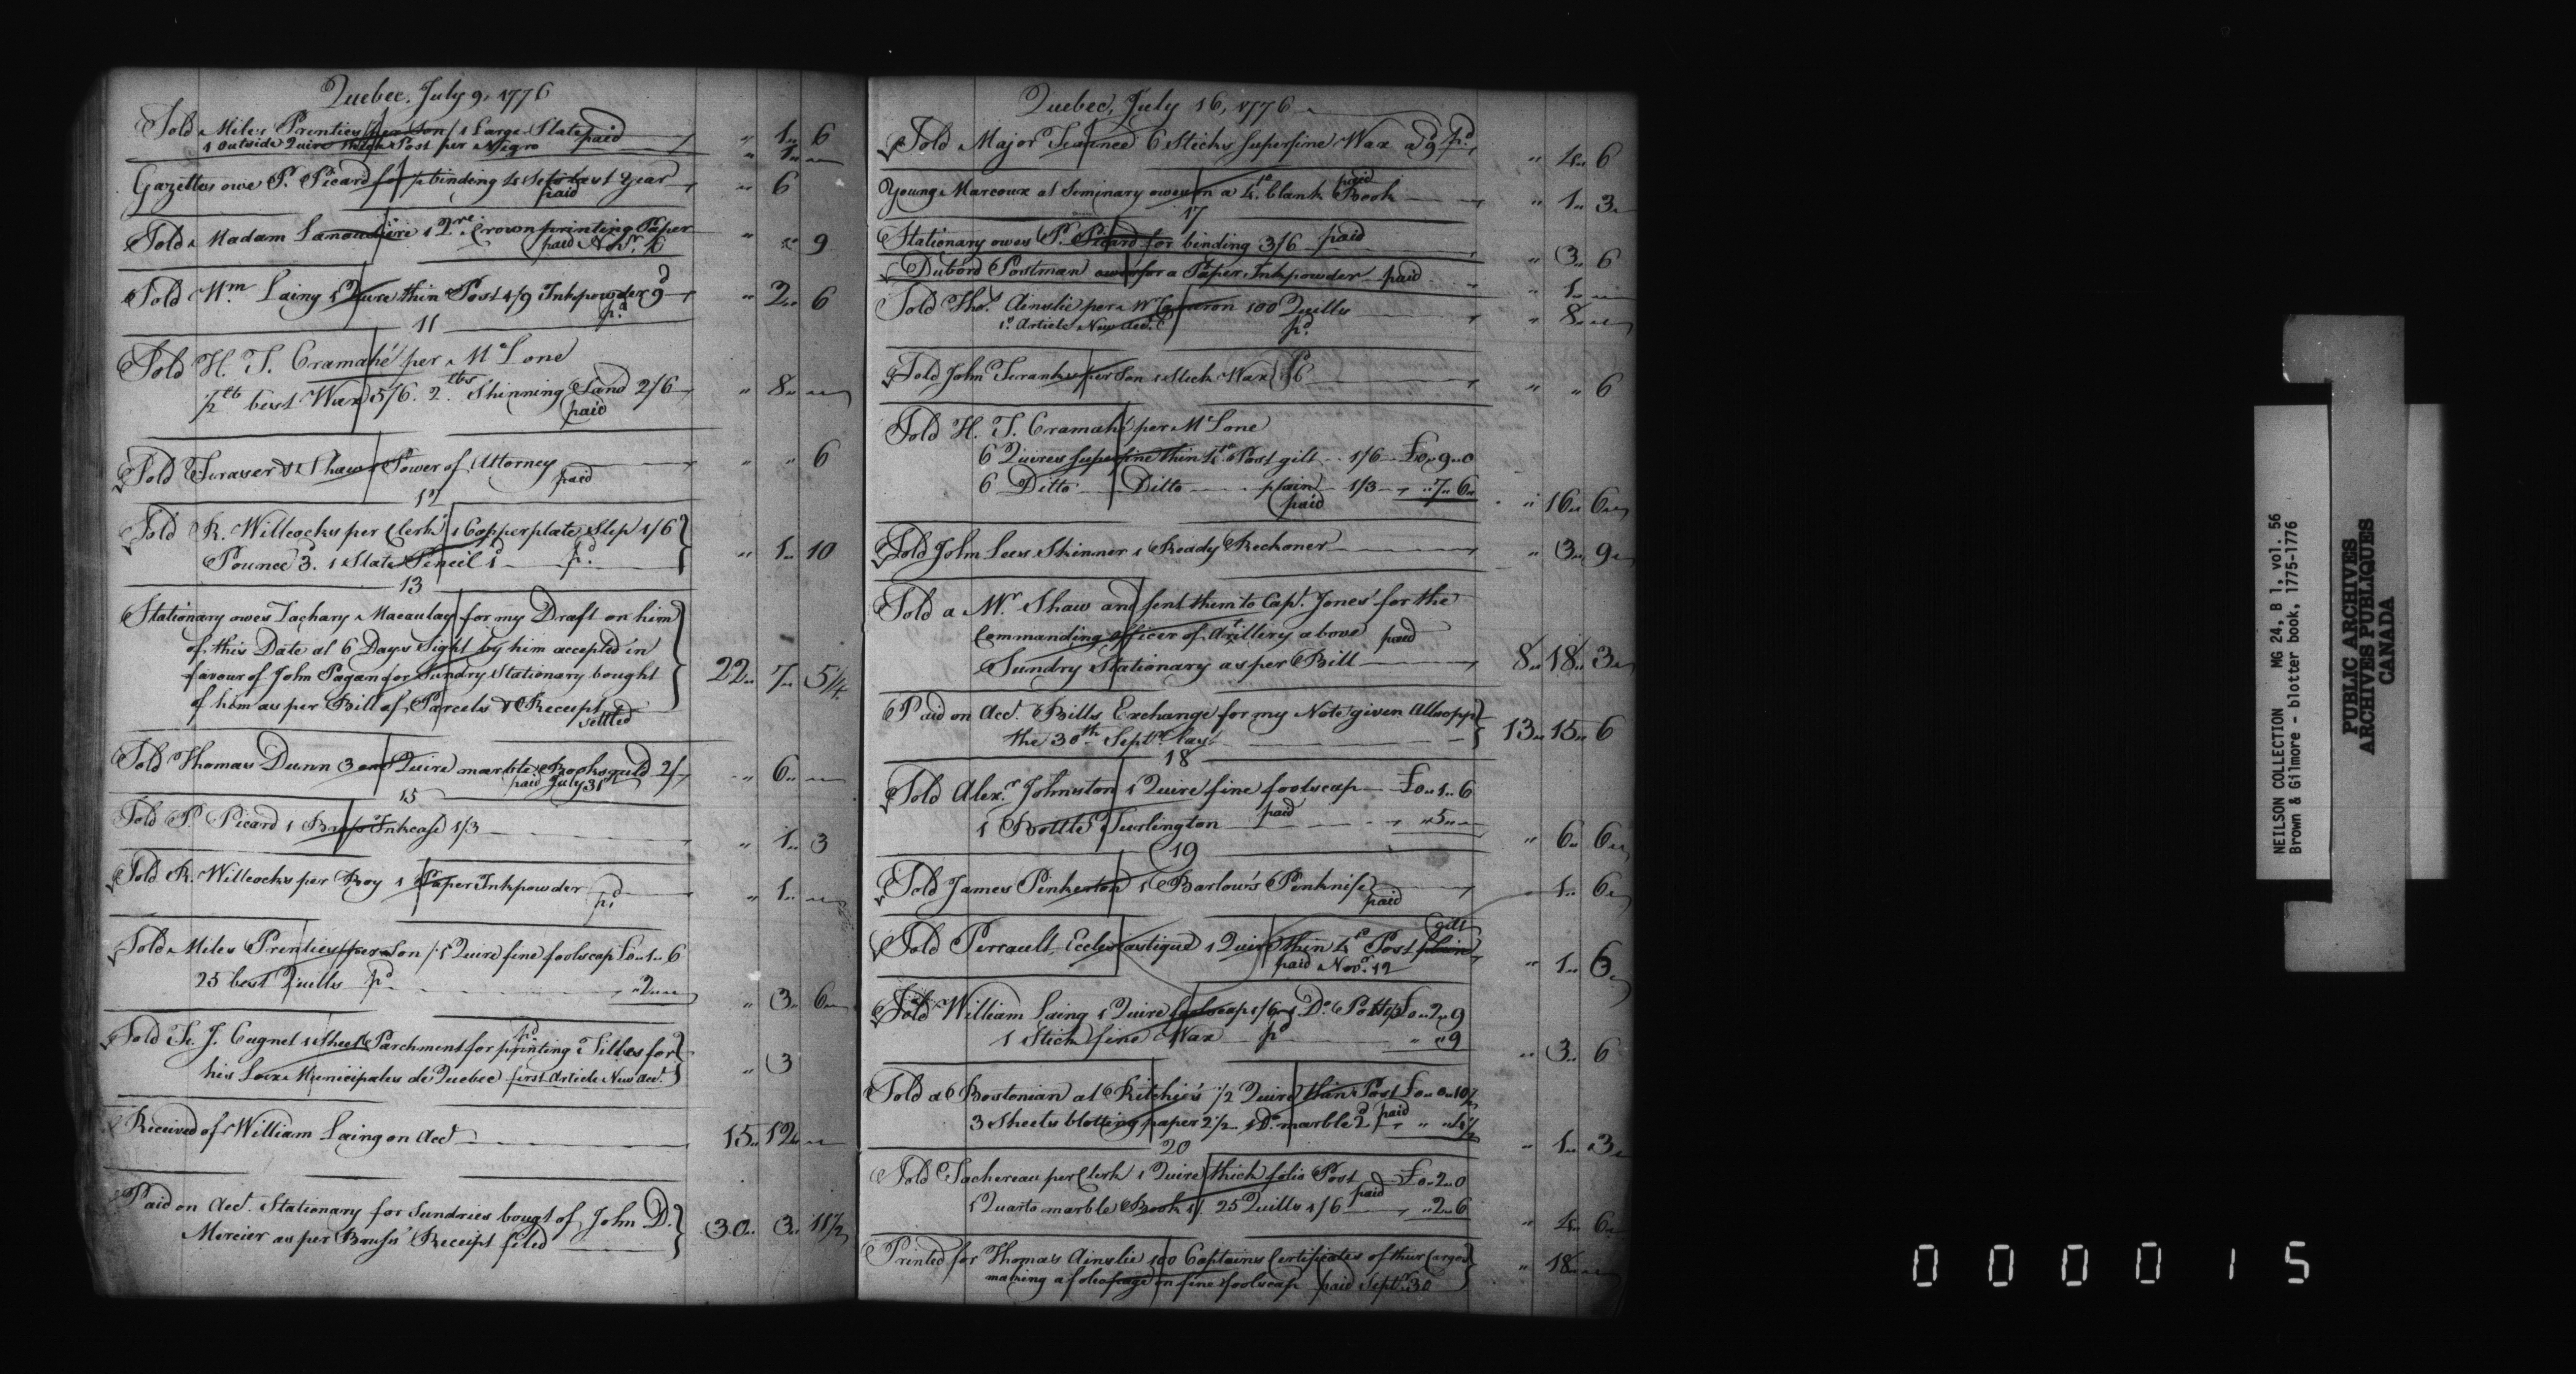 Quebec, July 9, 1776
Sold Miles Prenties per Son 1 Large Slate paid " 1 " 6
1 Outside Quire thick Post per Negro " 1 "
Gazettes owe P. Picard for binding 4 Sets last Year paid " 6
Sold Madam Lanaudiere 1 Qre. Crown printing Paper " " 9
paid Novr.
Sold Wm. Laing 1 Quire thin Post 1/9 Inkpowder 9d " 2 " 6
pd.
11
Sold H. T. Cramahé per McLone
lb best Wax 5/6. 2 lbs Shinning Sand 2/6 " 8 "
paid
Sold Fraser & Shaw 1 Power of Attorney " " 6
paid
12
Sold R. Willcocks per Clerk 1 Copperplate Slip 1/6
Pounce 3. 1 Slate Pencil 1 pd. " 1 " 10
13
Stationary owes Zachary Macaulay for my Draft on him
of this Date at 6 Days Sight by him accepted in
favour of John Pagan for Sundry Stationary bought 22 " 7 " 5 1/4
of him as per Bill of Parcels & Receipt
settled
Sold Thomas Dunn 3 one Quire marble Books 2/ " 6 "
paid July 31st
15
Sold P. Picard 1 Brass Inkcase 1/3 " 1 " 3
Sold R. Willcocks per Boy 1 Paper Inkpowder " 1 "
pd.
Sold Miles Prenties per Son 1 Quire fine foolscap £0 " 1 " 6
25 best Quills pd. " 2 " " 3 " 6
Sold F. J. Cugnet 1 Sheet Parchment for printing Titles for pd.
his Loix Municipales de Quebec first Article New Acct. " 3
Received of William Laing on Acct 15 " 12 "
Paid on Acct. Stationary for Sundries bougt of John D.
Mercier as per Receipt filed 30 " 3 " 11 1/2
Quebec, July 16, 1776
Sold Major 6 Sticks superfine Wax a 9 pd. " 4 " 6
Young Marcoux at Seminary owes on a 4to. blank Book paid " 1 " 3
17
Stationary owes P. Picard for binding 3/6 paid " 3 " 6
Dubord Postman owes for a Paper Inkpowder paid " 1 "
Sold Thos. Ainslie per Mr Cameron 100 Quills " 8 "
1st. Article New Acct. pd.
Sold John Franks per Son 1 Stick Wax /6 " " 6
Sold H. T. Cramahé per McLone
6 Quires superfine thin 4to. Post gilt 1/6 £0 " 9 " 0
6 Ditto Ditto plain 1/3 " 7 " 6 " 16 " 6
paid
Sold John Lees Skinner 1 Ready Reckoner " 3 " 9
Sold a Mr. Shaw and sent them to Capt. Jones' for the
Commanding officer of Artillery above paid
Sundry Stationary as per Bill 8 " 18 " 3
Paid on Acct. Bills Exchange for my Note given Allsopp
the 30th Septr. last 13 " 15 " 6
18
Sold Alexr. Johnston 1 Quire fine foolscap £0 " 1 " 6
1 Bottle Turlington paid " 5 " " 6 " 6
19
Sold James Pinkerton 1 Barlow's Penknife " 1 " 6
paid
Sold Perrault, Ecclesiastique 1 Quire thin 4to Post plain gilt
paid Novr. 12 " 1 " 6
Sold William Laing 1 Quire foolscap 1/6 1 Do. Pott 1/3 £0 " 2 " 9
1 Stick fine Wax pd. " " 9 " 3 " 6
Sold a Bostonian at Ritchie's 1/2 Quire thin Post £0 " 0 " 10 1/2
3 Sheets blotting paper 2 1/2 1 Do. marble 2 paid " " 4 1/2 " 1 " 3
20
Sold Tachereau per Clerk 1 Quire thick folio Post £0 " 2 " 0
1 Quarto marble Book 1/ 25 Quills 1/6 paid " 2 " 6 " 4 " 6
Printed for Thomas Ainslie 100 Captains Certificates of their Cargoes
making a folio page on fine foolscap paid Septr. 30 " 18 "
NEILSON COLLECTION MG 24, B 1, vol. 56
Brown & Gilmore - blotter book, 1775-1776
PUBLIC ARCHIVES
ARCHIVES PUBLIQUES
CANADA
000015